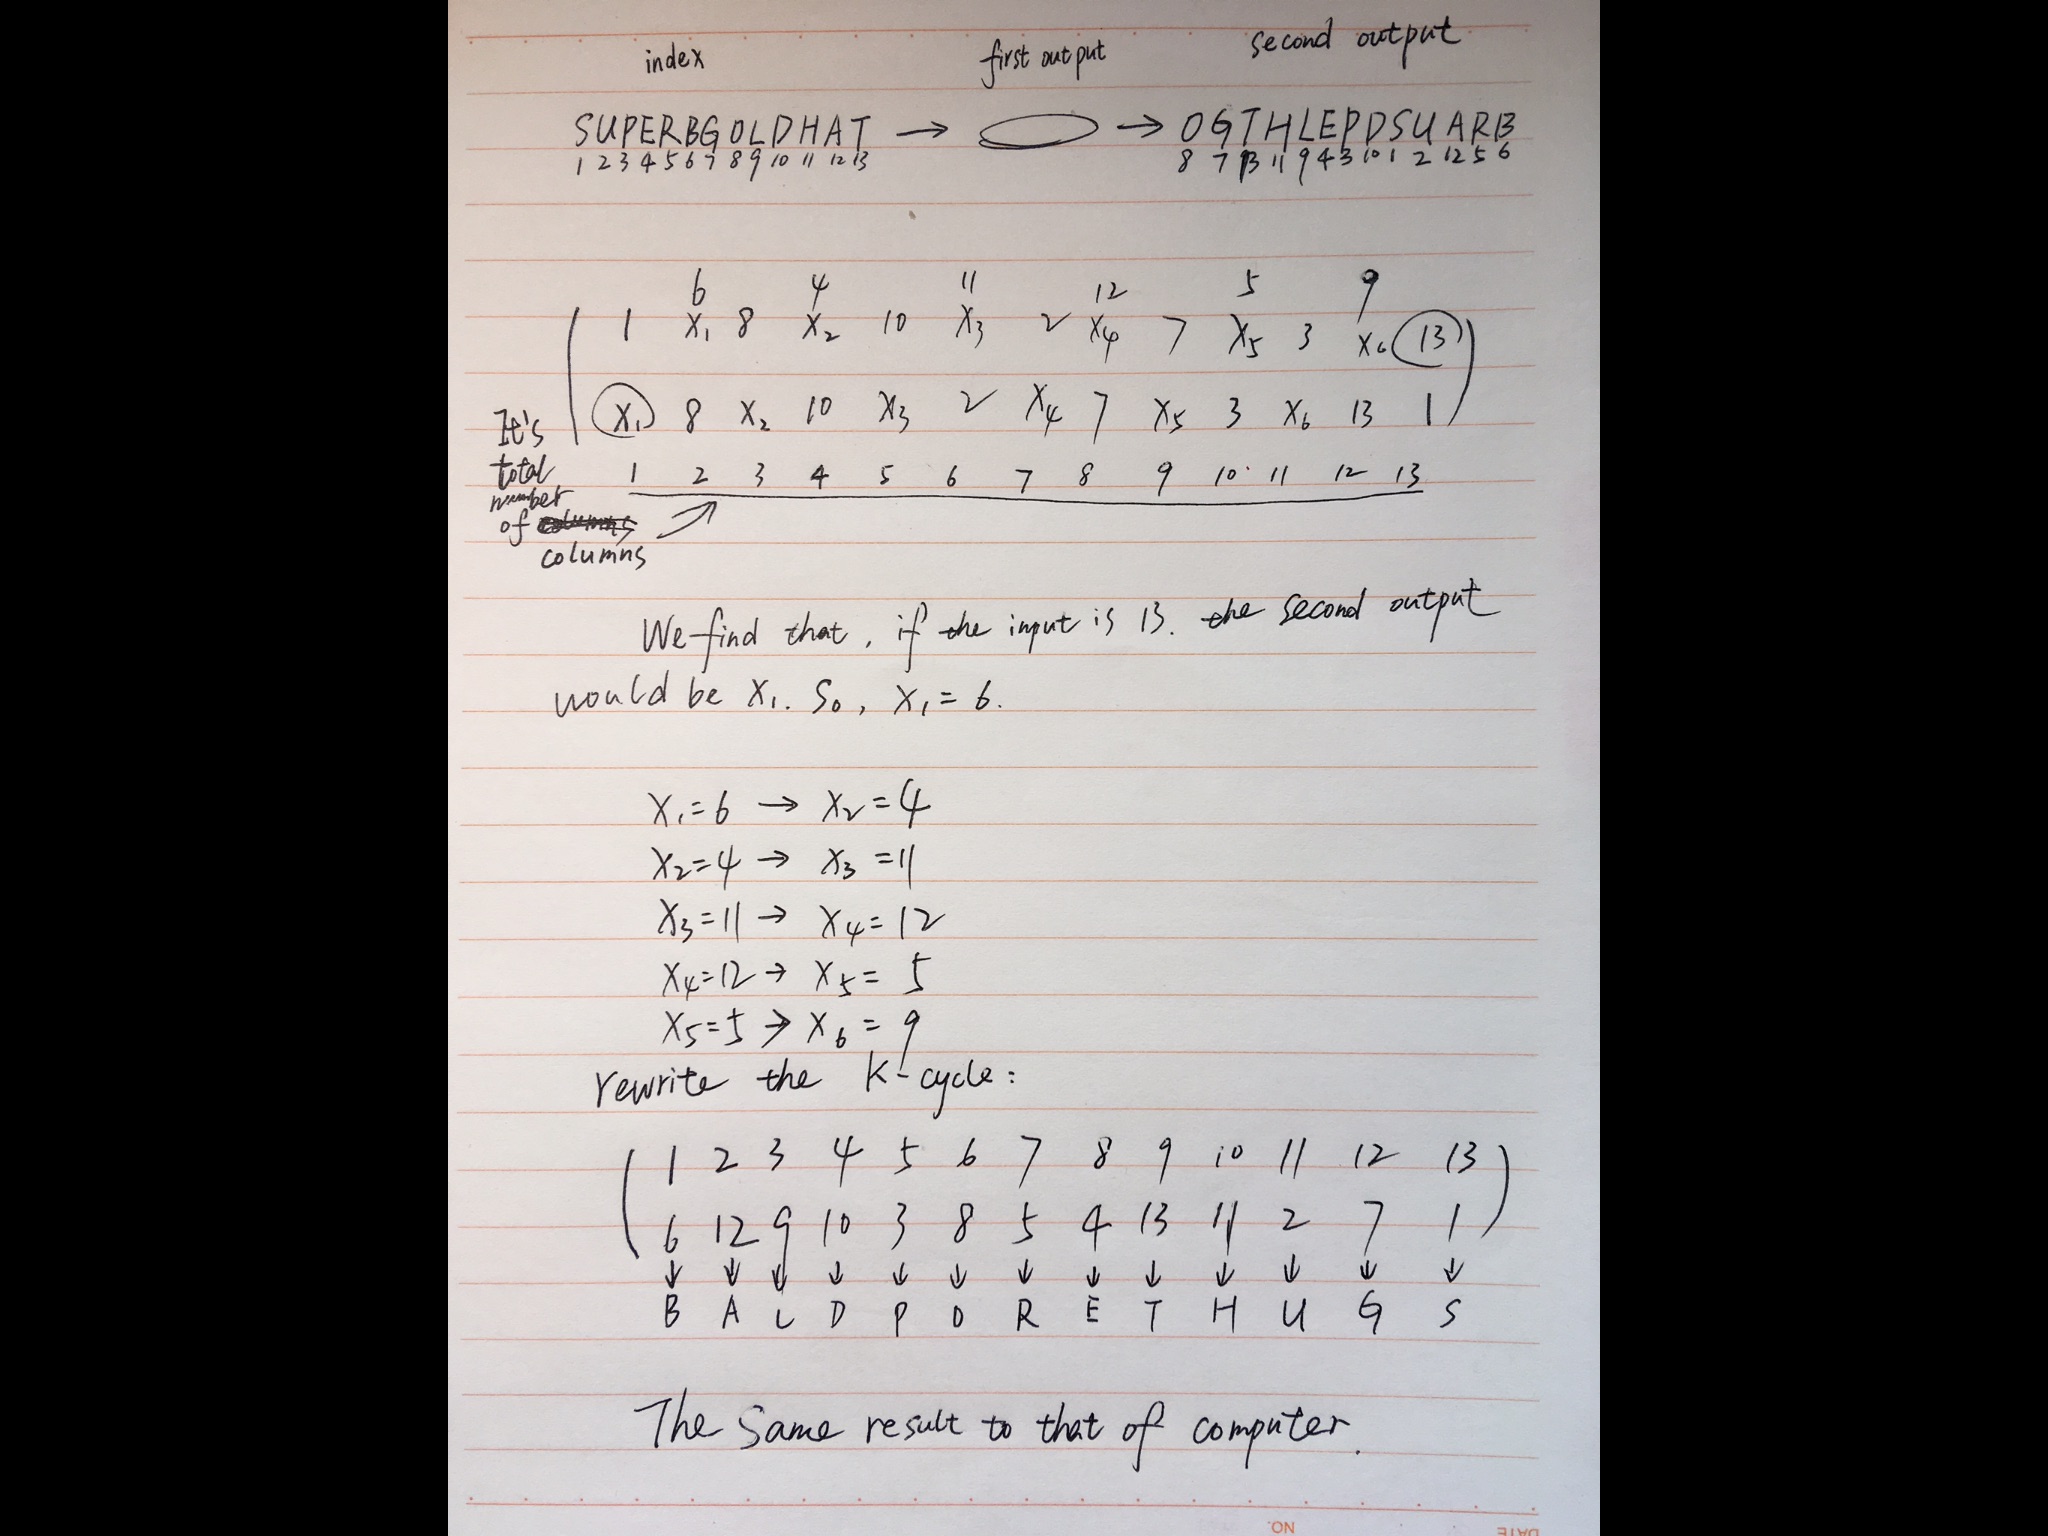 index first output second output
SUPERBGOLDHAT → → OGTHLEPDSUARB
1 2 3 4 5 6 7 8 9 10 11 12 13 8 7 13 11 9 4 3 10 1 2 12 5 6
6 4 11 12 5 9
( 1 X₁ 8 X₂ 10 X₃ 2 X₄ 7 X₅ 3 X₆ 13 )
( X₁ 8 X₂ 10 X₃ 2 X₄ 7 X₅ 3 X₆ 13 1 )
It's
total 1 2 3 4 5 6 7 8 9 10 11 12 13
number
of columns
columns
We find that, if the input is 13. the second output
would be X₁. So, X₁ = 6.
X₁ = 6 → X₂ = 4
X₂ = 4 → X₃ = 11
X₃ = 11 → X₄ = 12
X₄ = 12 → X₅ = 5
X₅ = 5 → X₆ = 9
rewrite the K-cycle:
( 1 2 3 4 5 6 7 8 9 10 11 12 13 )
( 6 12 9 10 3 8 5 4 13 11 2 7 1 )
↓ ↓ ↓ ↓ ↓ ↓ ↓ ↓ ↓ ↓ ↓ ↓ ↓
B A L D P O R E T H U G S
The same result to that of computer.
NO.
DATE